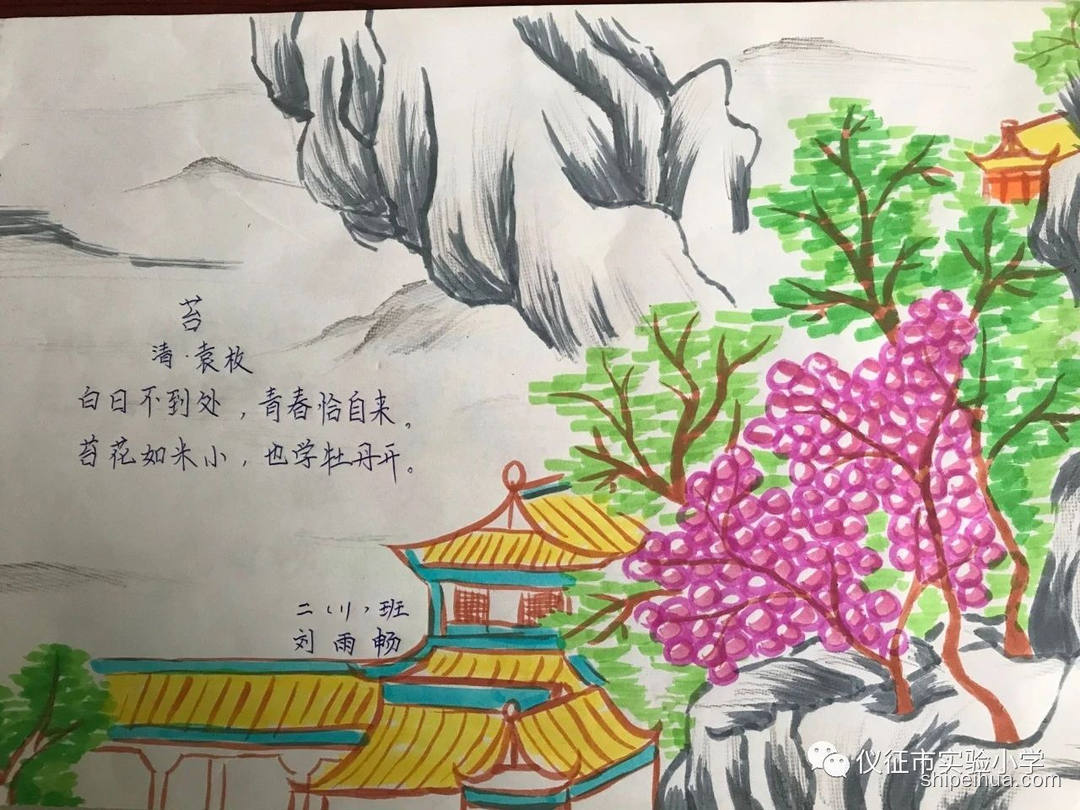 苔
清·袁枚
白日不到处，青春恰自来。
苔花如米小，也学牡丹开。
二（1）班
刘雨畅
仪征市实验小学
shipeihua.com